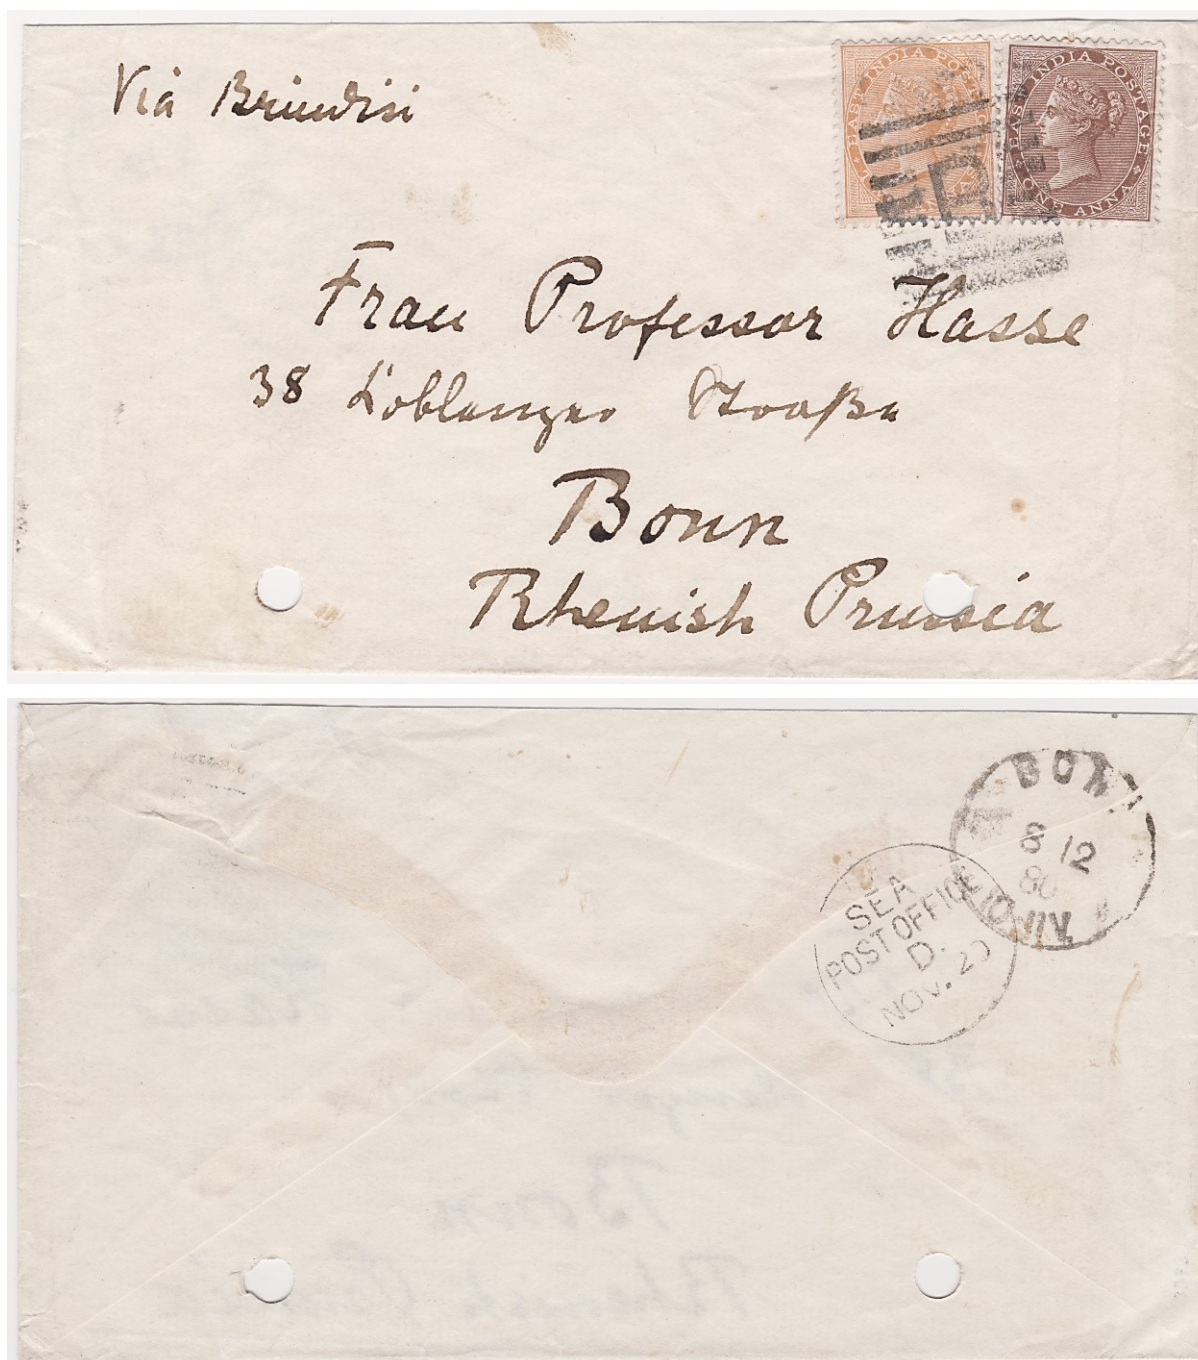 Via Brindisi
EAST INDIA POSTAGE
EAST INDIA POSTAGE
ONE ANNA
B
Frau Professor Hasse
38 Coblenzer Straße
Bonn
Rhenish Prussia
BONN
8 12
80
SEA
POST OFFICE
D.
NOV. 20